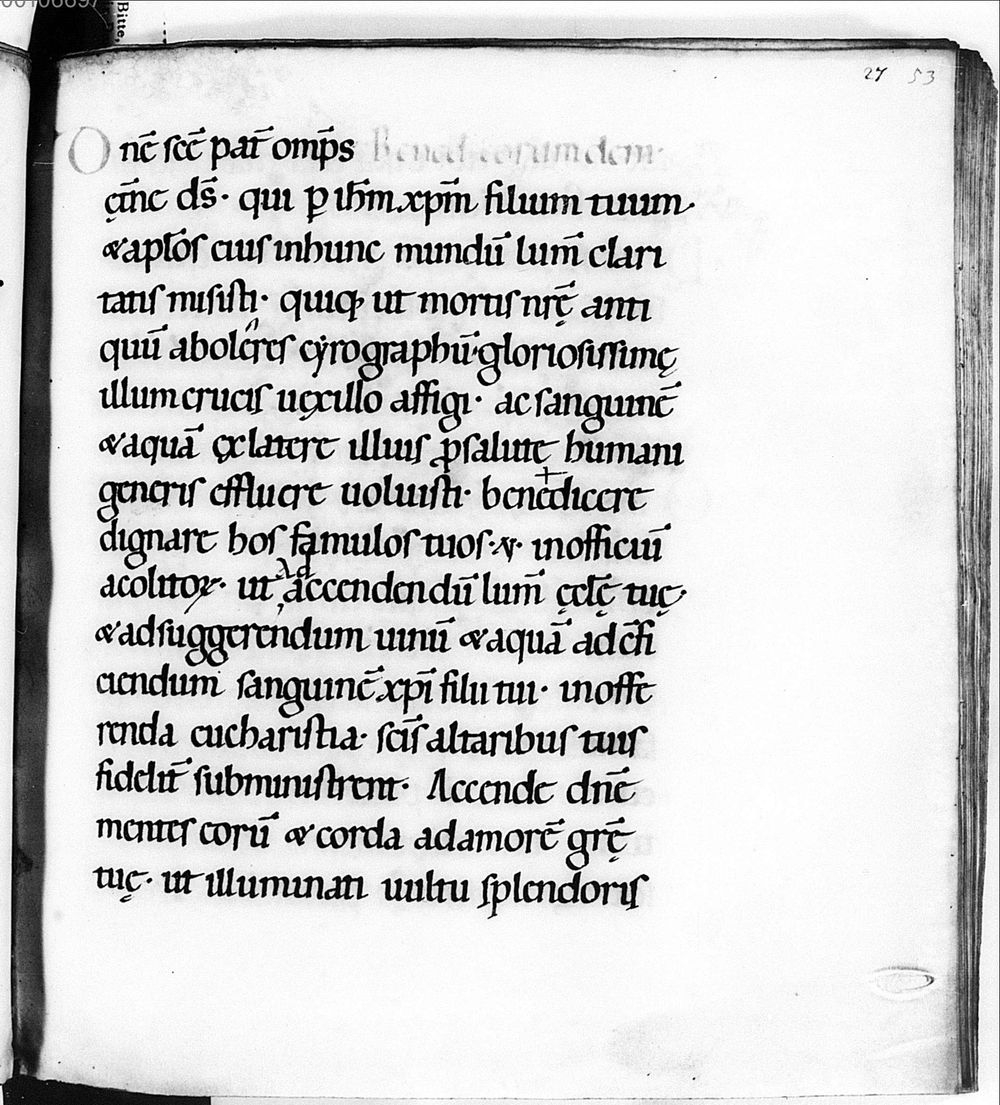 27 53
One̅ sc̅e pat̅ omp̅s Bened. eorumdem.
ęt̅ne ds̅· qui ꝑ ih̅m xp̅m filium tuum·
&apl̅os eius inhunc mundū lum̅ clari
tatis misisti· quiq; ut mortis nr̅ę anti
quū aboleres cẏrographū·gloriosissimę
illum crucis uęxillo affigi· ac sanguinē
&aquā ęx latere illius ꝓsalute humani
generis effluere uoluisti· bene+dicere
dignare hos famulos tuos·&· inofficiū
acolitoꝝ· ut Ad accendendū lum̅ ęcl̅ę tuę·
&adsuggerendum uinū &aquā ad c̅fi
ciendum sanguinē xp̅i filii tui· inoffe
renda eucharistia· sc̅is altaribus tuis
fidelit̅ subministrent· Accende dn̅e
mentes eorū &corda adamorē gr̅ę
tuę· ut illuminati uultu splendoris
Bitte,